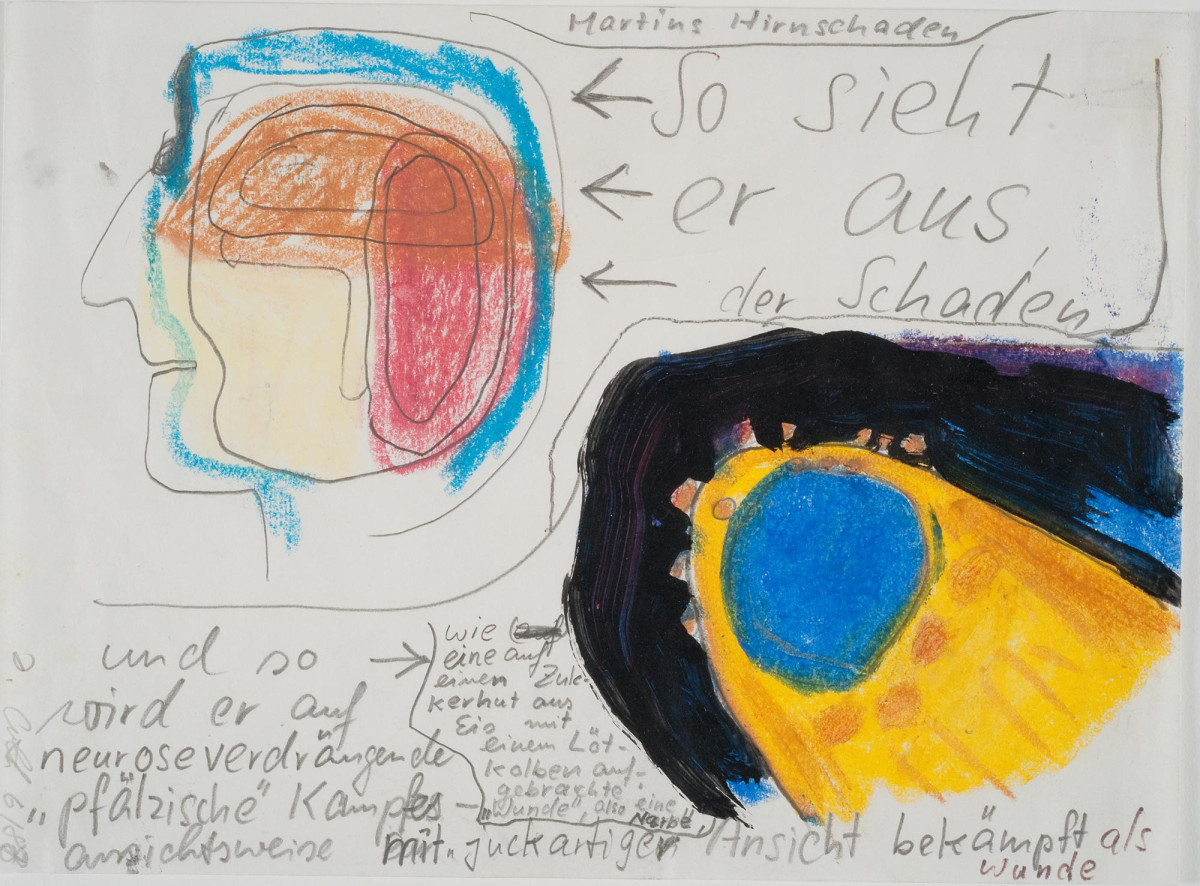 Martins Hirnschaden
← So sieht
← er aus,
← der Schaden
und so →
wird er auf
neuroseverdrängende
„pfälzische" Kampfes
ansichtsweise mit „juckartiger Ansicht bekämpft als
wunde
wie
eine auf
einen Zuk-
kerhut aus
Eis mit
einem Löt-
kolben auf-
gebrachte
„Wunde", also eine
Narbe,